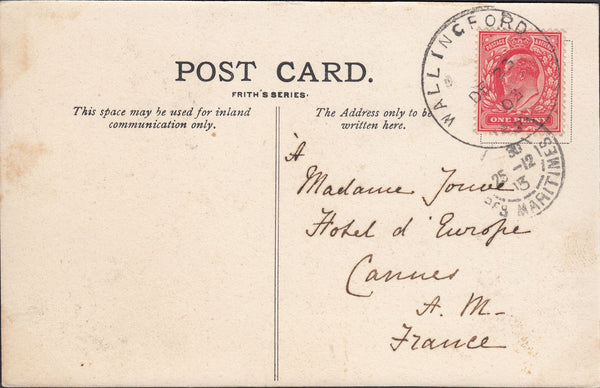 WALLINGFORD
DE 23
03
POSTAGE REVENUE
ONE PENNY
POST CARD.
FRITH'S SERIES.
This space may be used for inland
communication only.
The Address only to be
written here.
25 -12
MARITIMES
À
Madame Jouve
Hotel d'Europe
Cannes
A. M-
France